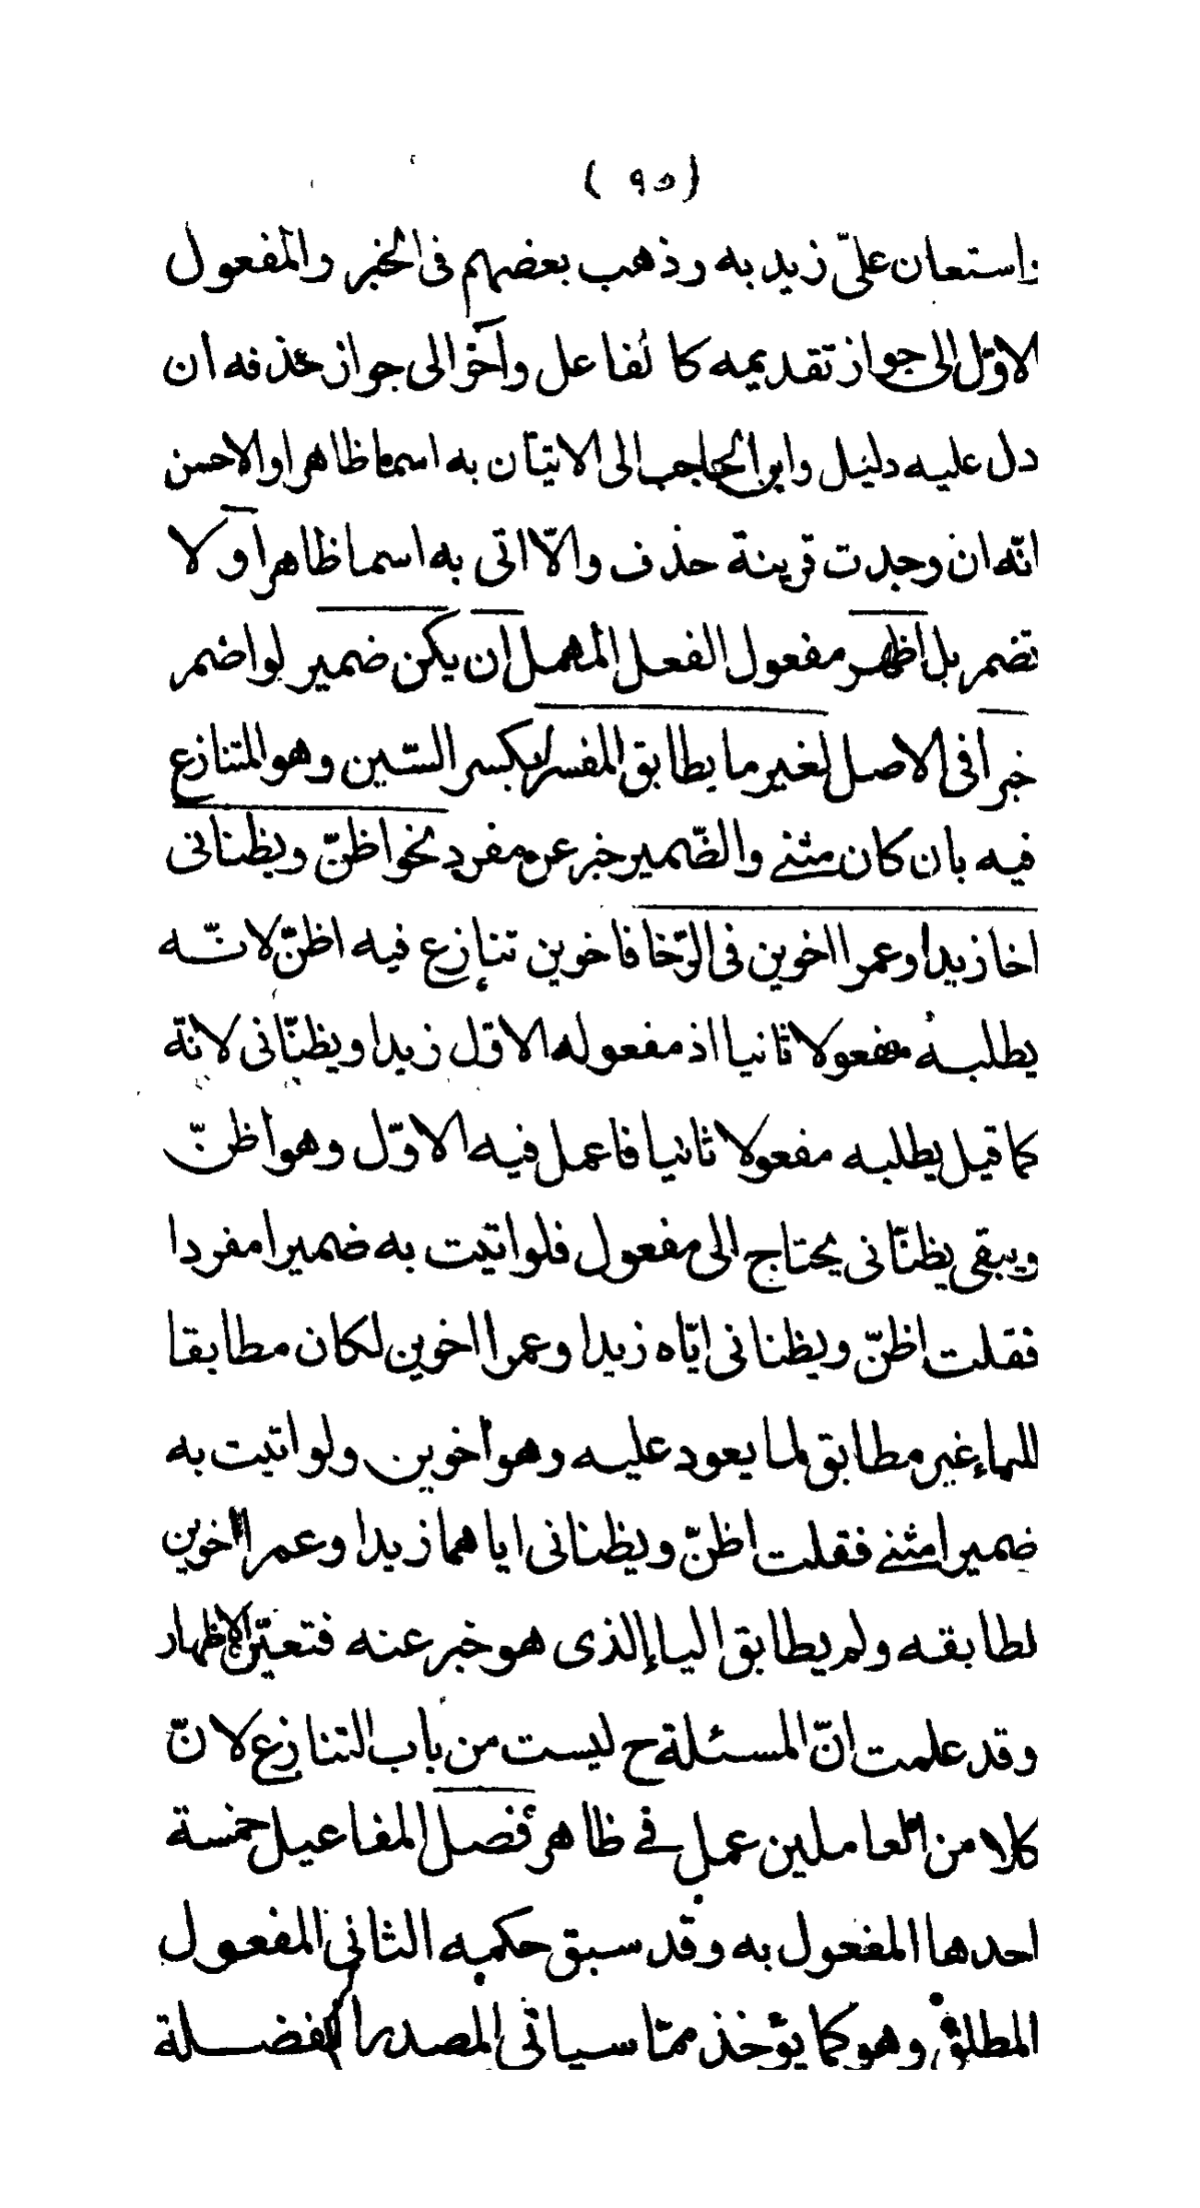 ( ٩٥ )
واستعان علىّ زيد به وذهب بعضهم فى الخبر والمفعول
الاوّل الى جواز تقديمه كالفاعل وآخر الى جواز حذفه ان
دل عليه دليل وابن الحاجب الى الاتيان به اسما ظاهرا والاحسن
انّه ان وجدت قرينة حذف والّا اتى به اسما ظاهرا و لا
تضمر بل اظهر مفعول الفعل المهمل ان يكن ضمير لو اضمر
خبرا فى الاصل لغير ما يطابق المفسر بكسر السّين وهو المتنازع
فيه بان كان مثنى والضّمير خبر عن مفرد نحو اظنّ ويظنانى
اخا زيدا وعمرا اخوين فى الرّخا فاخوين تنازع فيه اظنّ لانّه
يطلبه مفعولا ثانيا اذ مفعوله الاوّل زيدا ويظنّانى لانّه
كما قيل يطلبه مفعولا ثانيا فاعمل فيه الاوّل وهو اظنّ
ويبقى يظنّانى يحتاج الى مفعول فلو اتيت به ضميرا مفردا
فقلت اظنّ ويظنانى ايّاه زيدا وعمرا اخوين لكان مطابقا
للياء غير مطابق لما يعود عليه وهو اخوين ولو اتيت به
ضميرا مثنى فقلت اظنّ ويظنانى اياهما زيدا وعمرا اخوين
لطابقه ولم يطابق الياء الذى هو خبر عنه فتعيّن الاظهار
وقد علمت انّ المسئلة ح ليست من باب التنازع لانّ
كلا من العاملين عمل فى ظاهر فصل المفاعيل خمسة
احدها المفعول به وقد سبق حكمه الثانى المفعول
المطلق وهو كما يؤخذ ممّا سياتى المصدر الفضلة